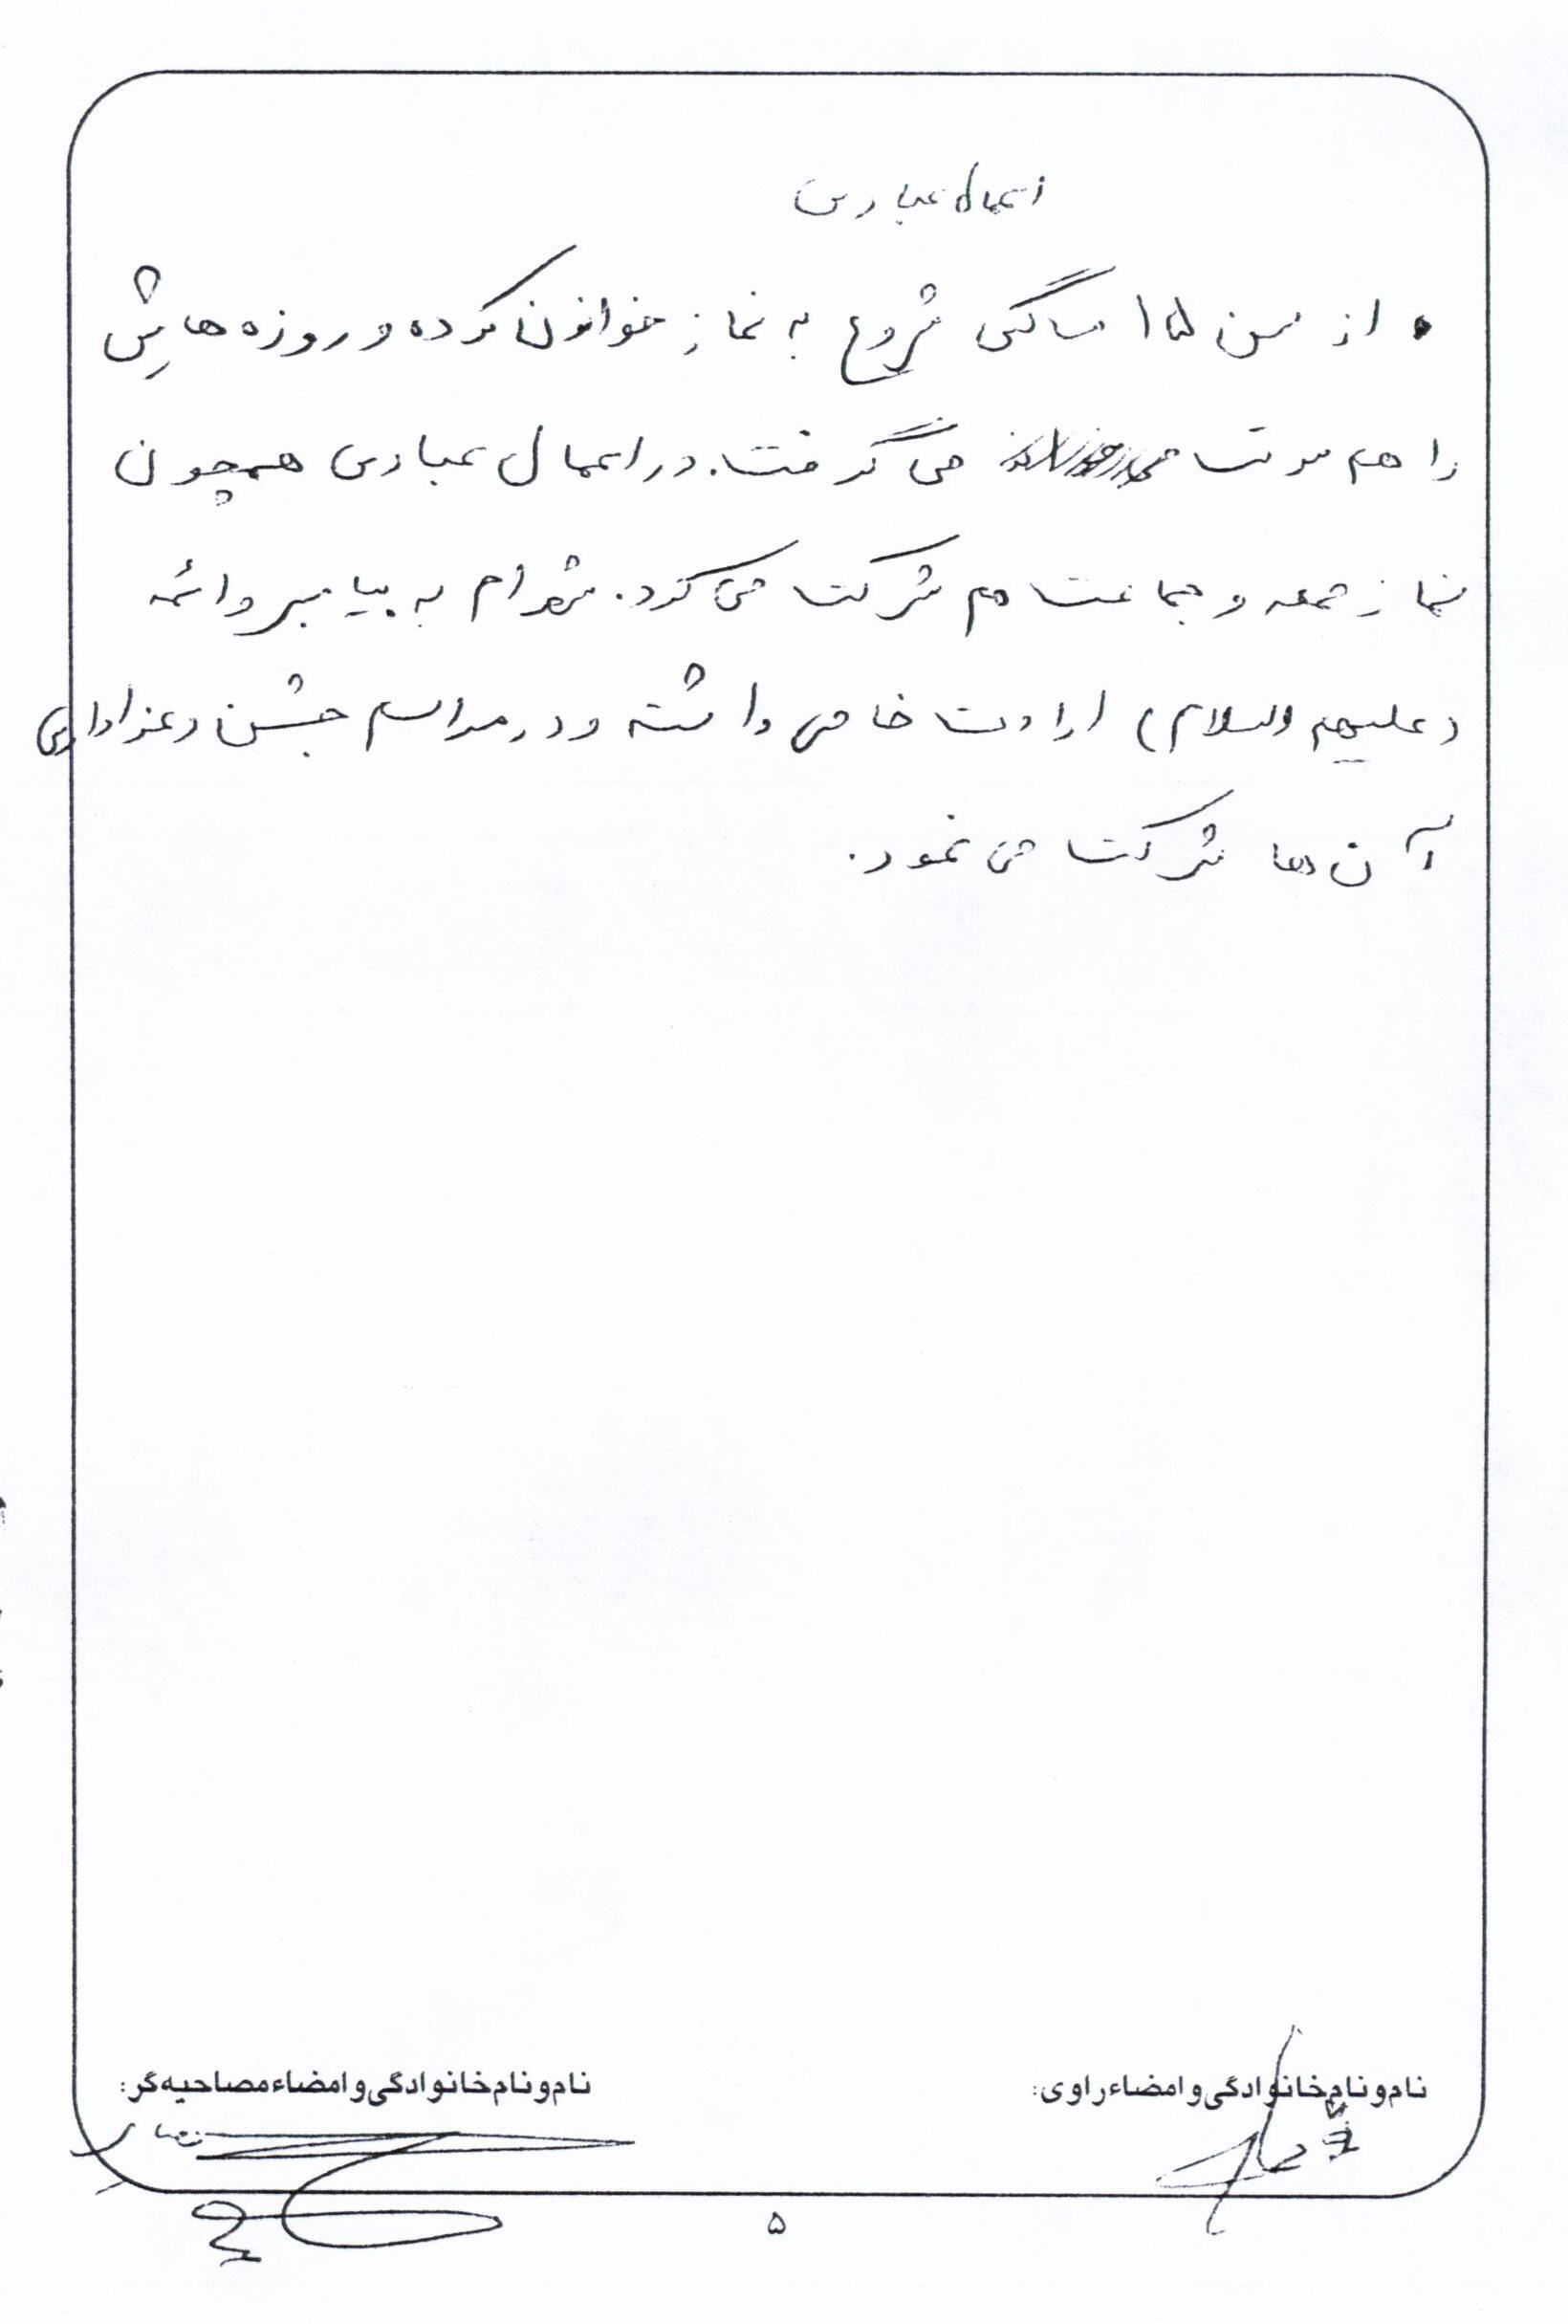 اعمال عبادی
• از سن ۱۵ سالگی شروع به نماز خواندن کرده و روزه هایش
را هم مرتب می گرفت. در اعمال عبادی همچون
نماز جمعه و جماعت هم شرکت می کرد. شهرام به پیامبر و ائمه
(علیهم السلام) ارادت خاصی داشته و در مراسم جشن و عزاداری
آن ها شرکت می نمود.
نام و نام خانوادگی و امضاء راوی:
نام و نام خانوادگی و امضاء مصاحبه گر:
۵